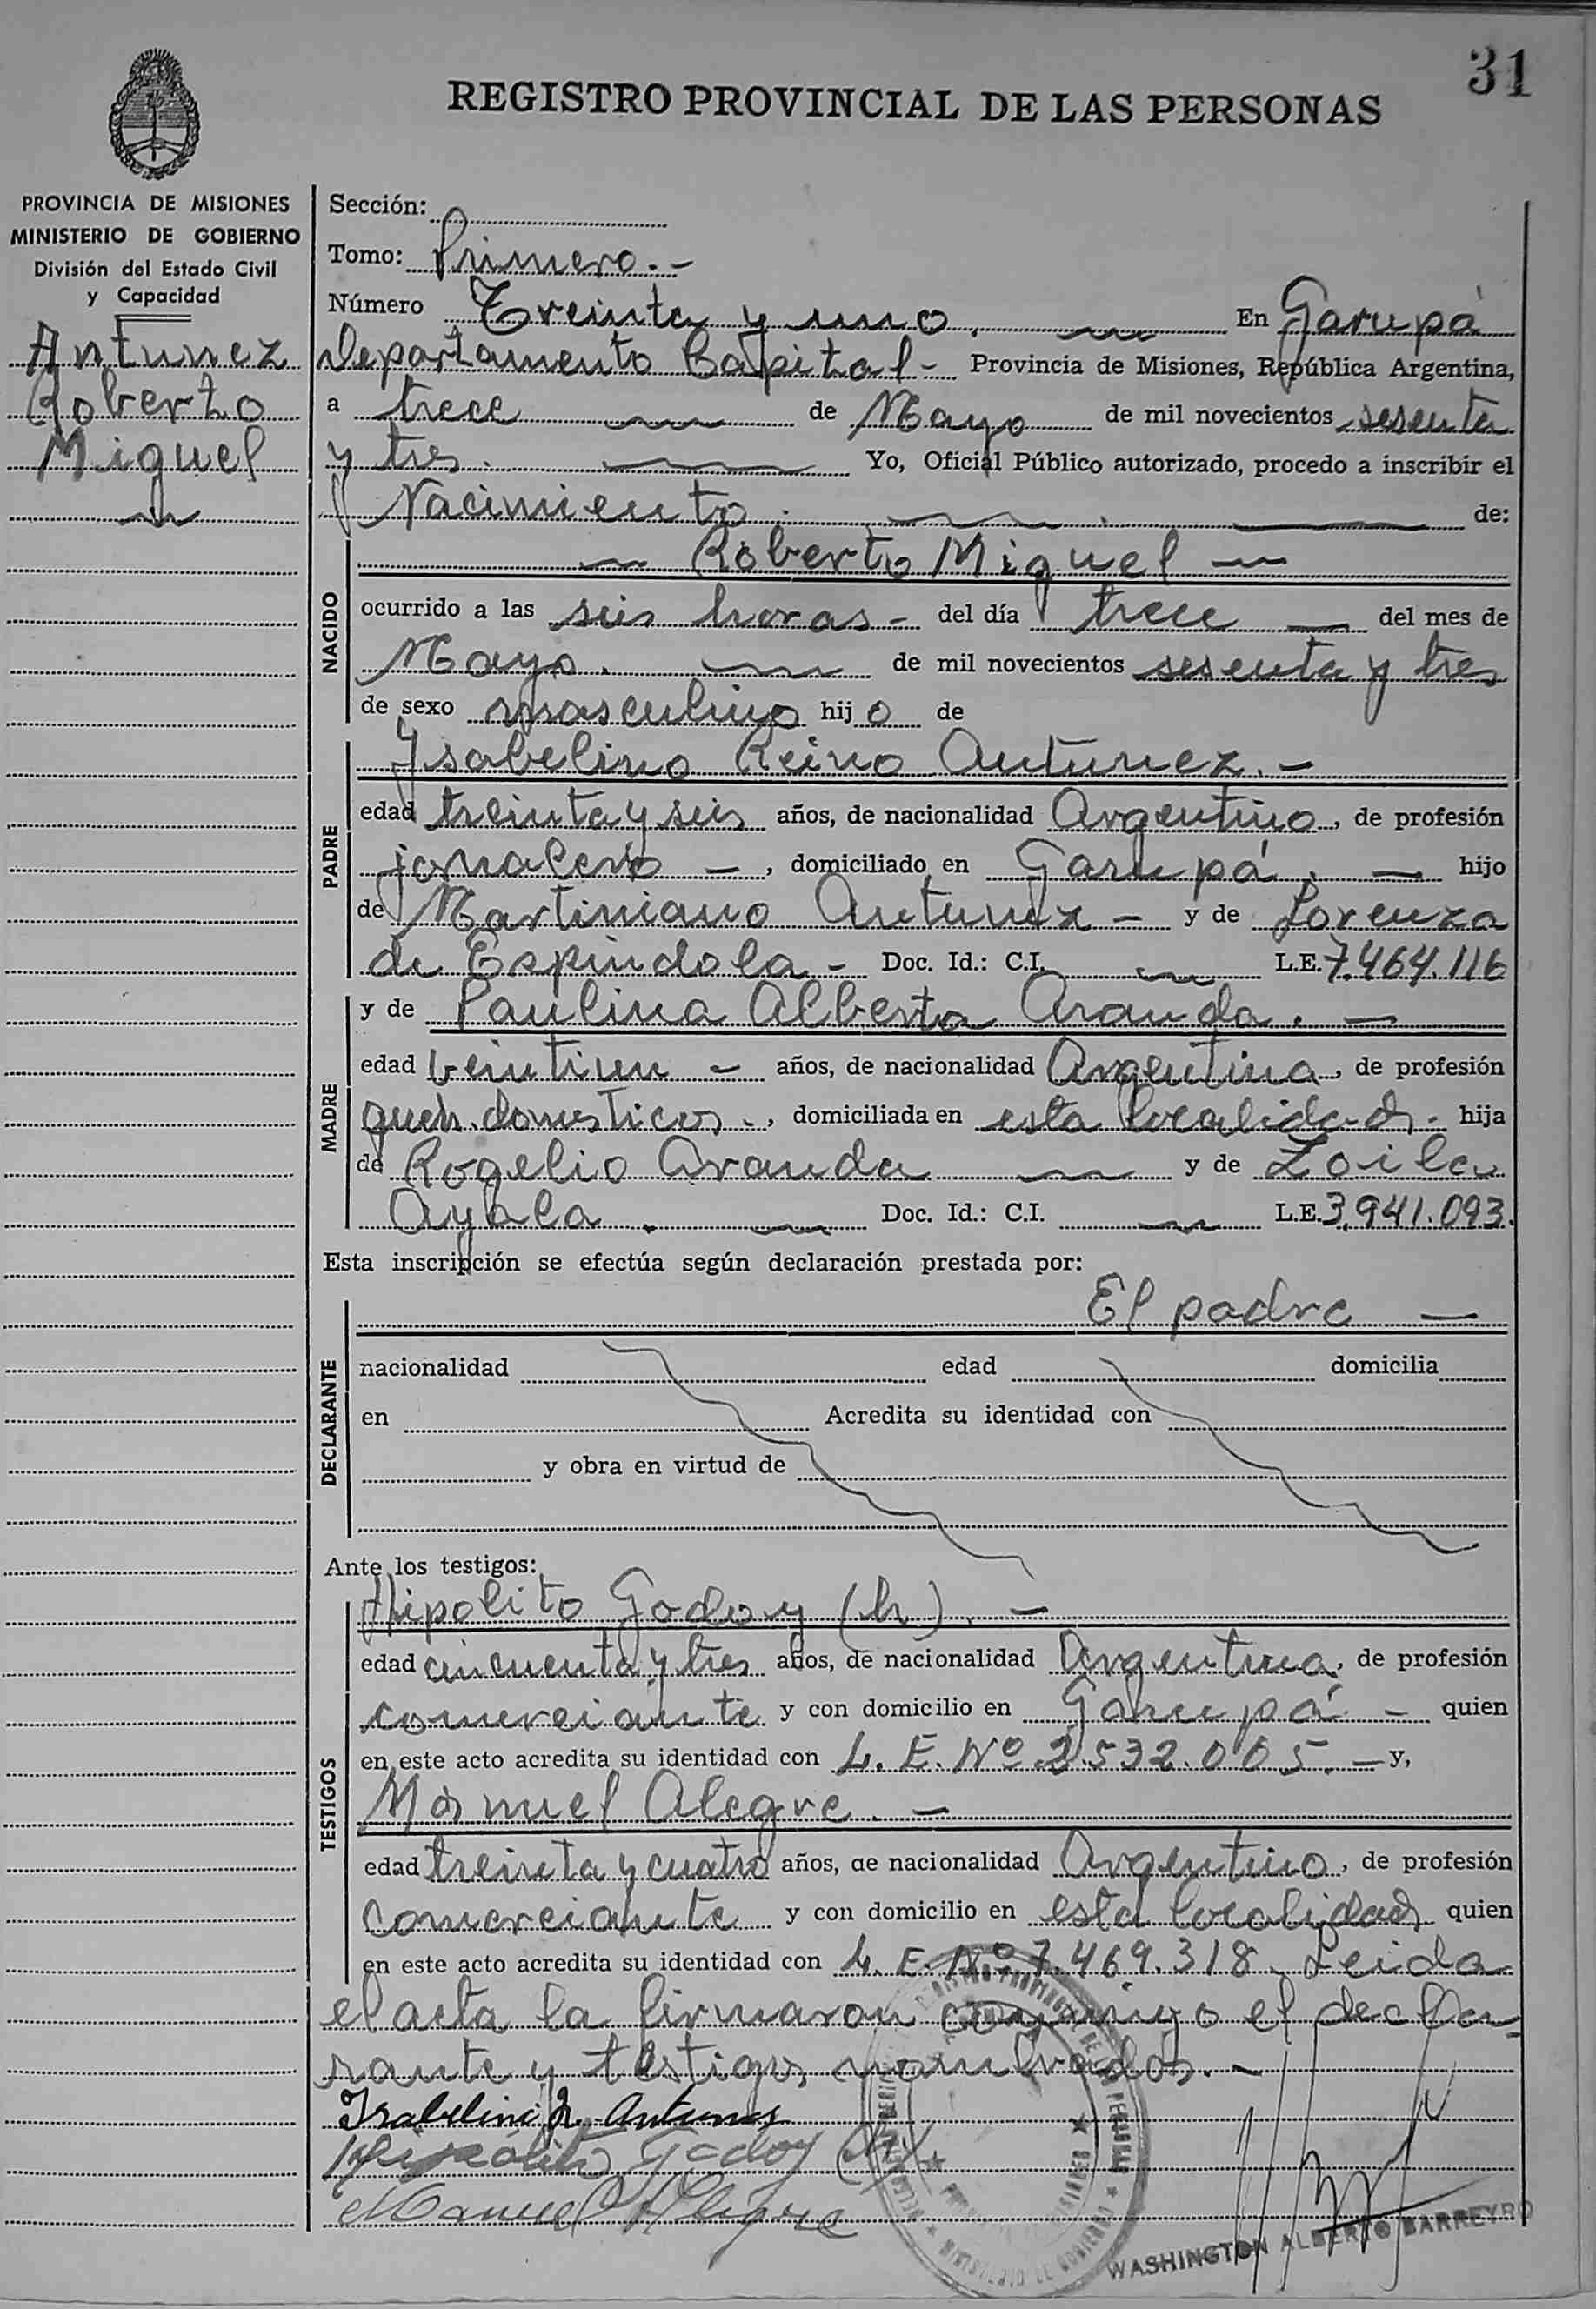 31
REGISTRO PROVINCIAL DE LAS PERSONAS
PROVINCIA DE MISIONES
MINISTERIO DE GOBIERNO
División del Estado Civil
y Capacidad
Antunez
Roberto
Miguel
Sección:
Tomo: Primero.-
Número Treinta y uno. En Garupá
Departamento Capital - Provincia de Misiones, República Argentina,
a trece de Mayo de mil novecientos sesenta
y tres. Yo, Oficial Público autorizado, procedo a inscribir el
Nacimiento. de:
NACIDO
Roberto Miguel
ocurrido a las seis horas - del día trece del mes de
Mayo. de mil novecientos sesenta y tres
de sexo masculino hijo de
PADRE
Ysabelino Reino Antunez. -
edad treinta y seis años, de nacionalidad Argentino, de profesión
jornalero -, domiciliado en Garupá. - hijo
de Martiniano Antunez - y de Lorenza
de Espindola - Doc. Id.: C.I. L.E. 7.464.116
MADRE
y de Paulina Alberta Aranda. -
edad veintiun - años, de nacionalidad Argentina, de profesión
queh. domesticos -, domiciliada en esta localidad. hija
de Rogelio Aranda y de Zoila
Ayala. Doc. Id.: C.I. L.E. 3.941.093.
Esta inscripción se efectúa según declaración prestada por:
DECLARANTE
El padre -
nacionalidad edad domicilia
en Acredita su identidad con
y obra en virtud de
Ante los testigos:
TESTIGOS
Hipolito Godoy (h). -
edad cincuenta y tres años, de nacionalidad Argentina, de profesión
comerciante y con domicilio en Garupá - quien
en este acto acredita su identidad con L. E. Nº 2.532.005. - y,
Manuel Alegre. -
edad treinta y cuatro años, de nacionalidad Argentino, de profesión
comerciante y con domicilio en esta localidad quien
en este acto acredita su identidad con L. E. Nº 7.469.318. Leida
el acta la firmaron conmigo el decla-
rante y testigos nombrados. -
Isabelino R. Antunes
Hipólito Godoy (h)
Manuel Alegre
WASHINGTON ALBERTO BARREYRO